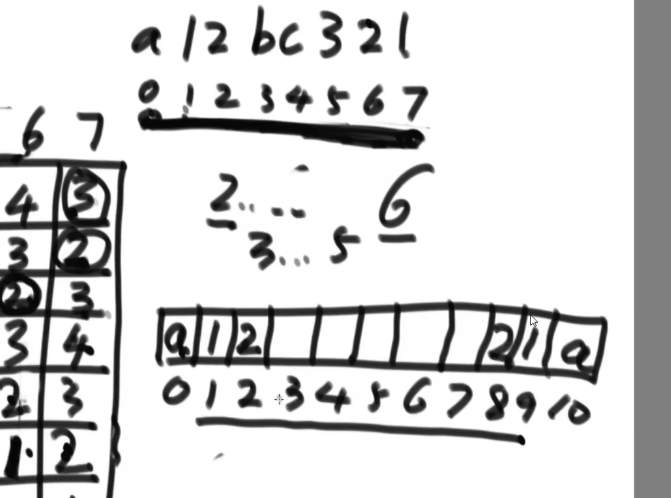 a 1 2 b c 3 2 1
0 1 2 3 4 5 6 7
6 7
4 3
3 2
2 3
3 4
2 3
1 2
2.... 6
3... 5
a 1 2 2 1 a
0 1 2 3 4 5 6 7 8 9 10